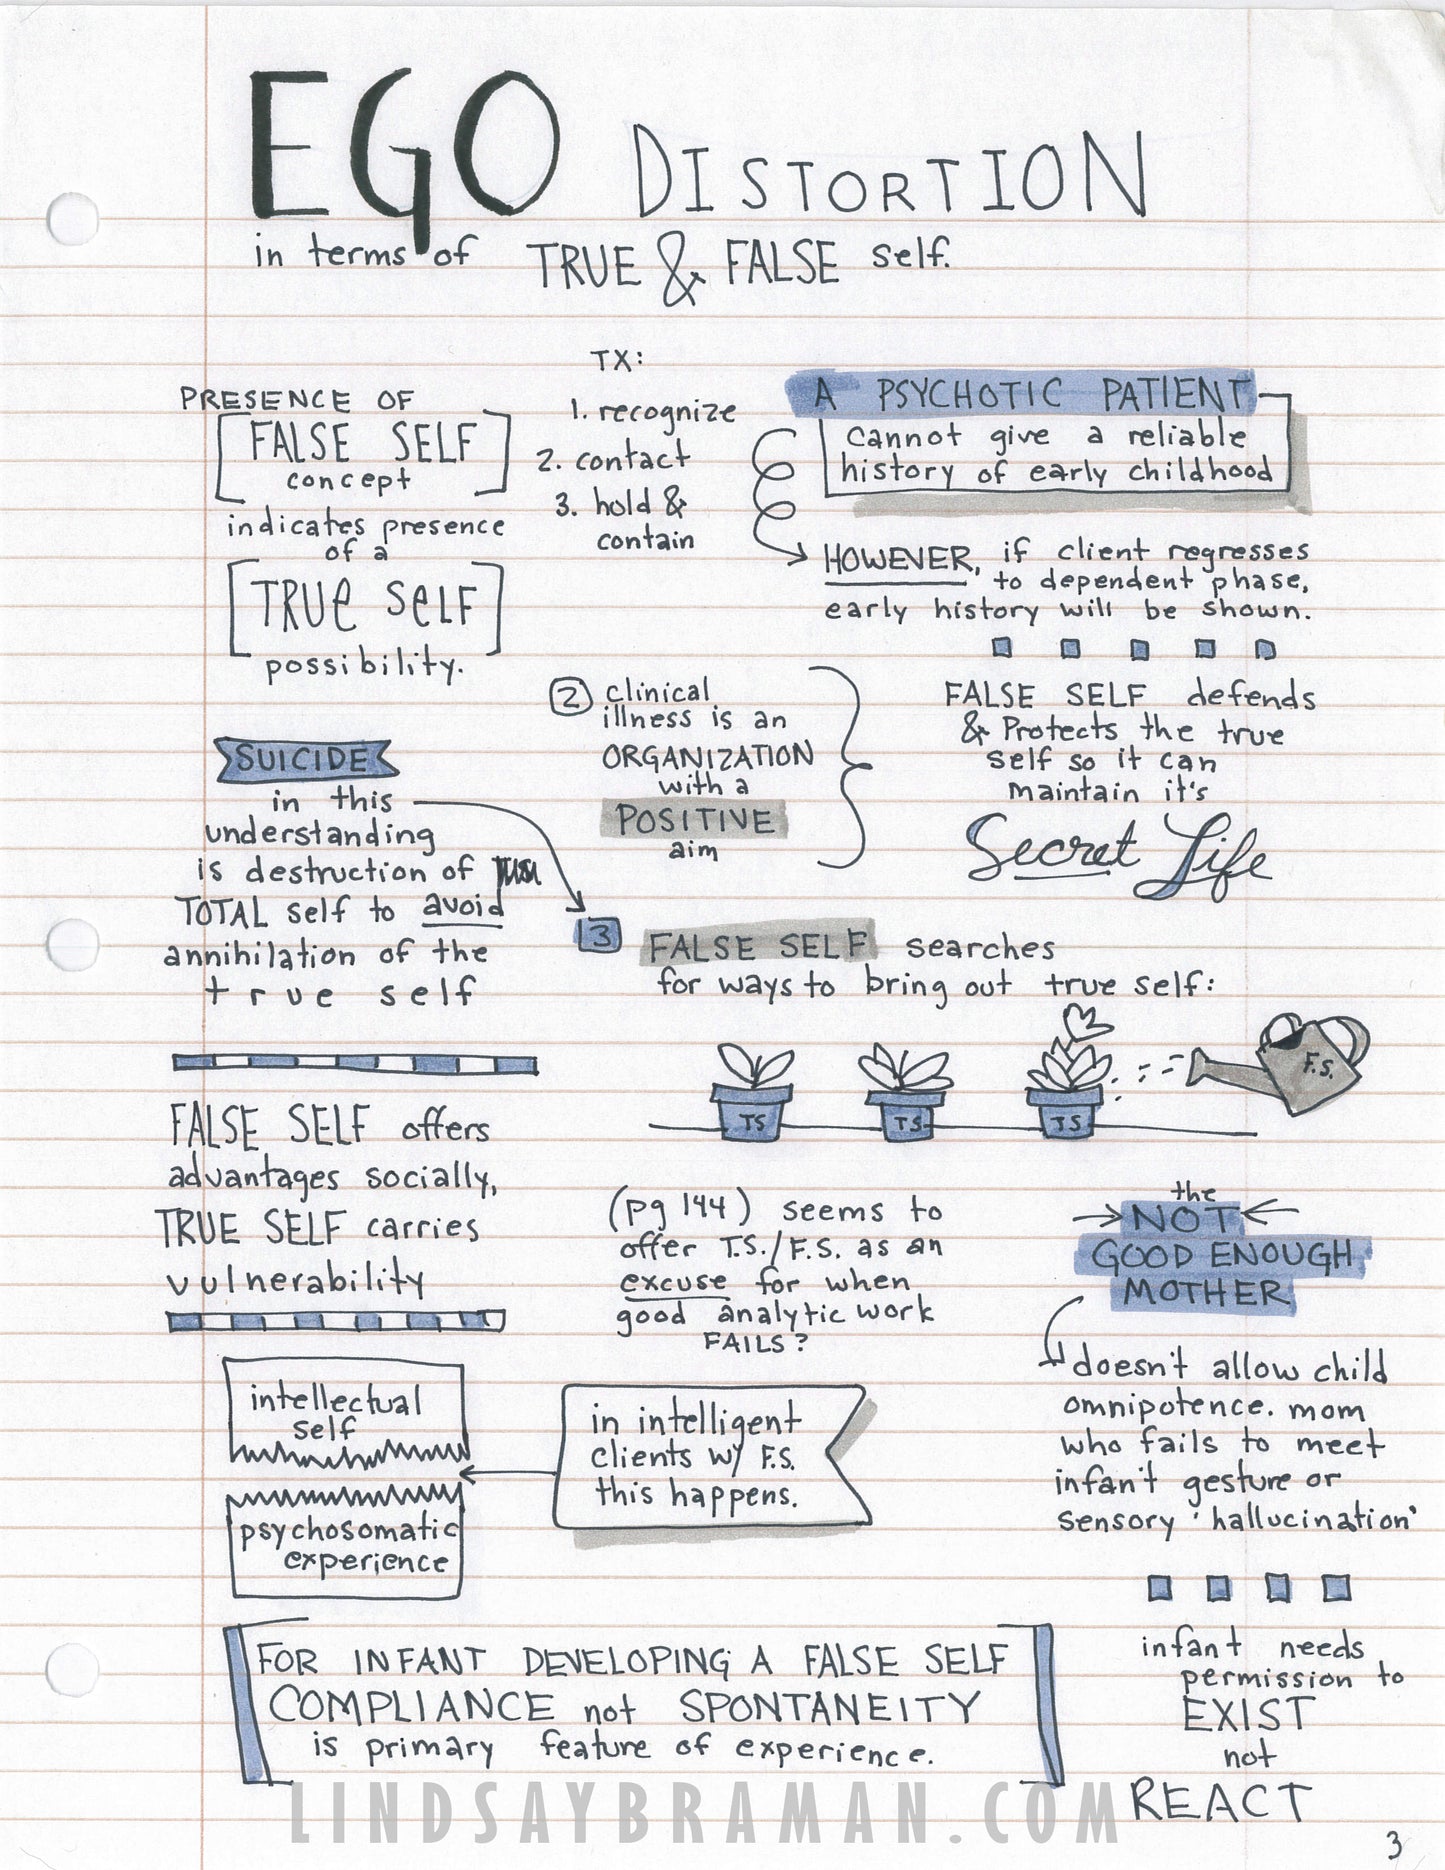 EGO DISTORTION
in terms of TRUE & FALSE self.
PRESENCE OF
FALSE SELF
concept
indicates presence
of a
TRUe SeLF
possibility.
TX:
1. recognize
2. contact
3. hold &
contain
A PSYCHOTIC PATIENT
cannot give a reliable
history of early childhood
HOWEVER, if client regresses
to dependent phase,
early history will be shown.
2 clinical
illness is an
ORGANIZATION
with a
POSITIVE
aim
FALSE SELF defends
& Protects the true
self so it can
maintain it's
Secret Life
SUICIDE
in this
understanding
is destruction of
TOTAL self to avoid
annihilation of the
true self
3 FALSE SELF searches
for ways to bring out true self:
TS
TS
TS
F.S.
FALSE SELF offers
advantages socially,
TRUE SELF carries
vulnerability
(pg 144) seems to
offer T.S./F.S. as an
excuse for when
good analytic work
FAILS?
the
NOT
GOOD ENOUGH
MOTHER
doesn't allow child
omnipotence. mom
who fails to meet
infan't gesture or
sensory 'hallucination'
intellectual
self
psychosomatic
experience
in intelligent
clients w/ F.S.
this happens.
infant needs
permission to
EXIST
not
REACT
FOR INFANT DEVELOPING A FALSE SELF
COMPLIANCE not SPONTANEITY
is primary feature of experience.
LINDSAYBRAMAN.COM
3